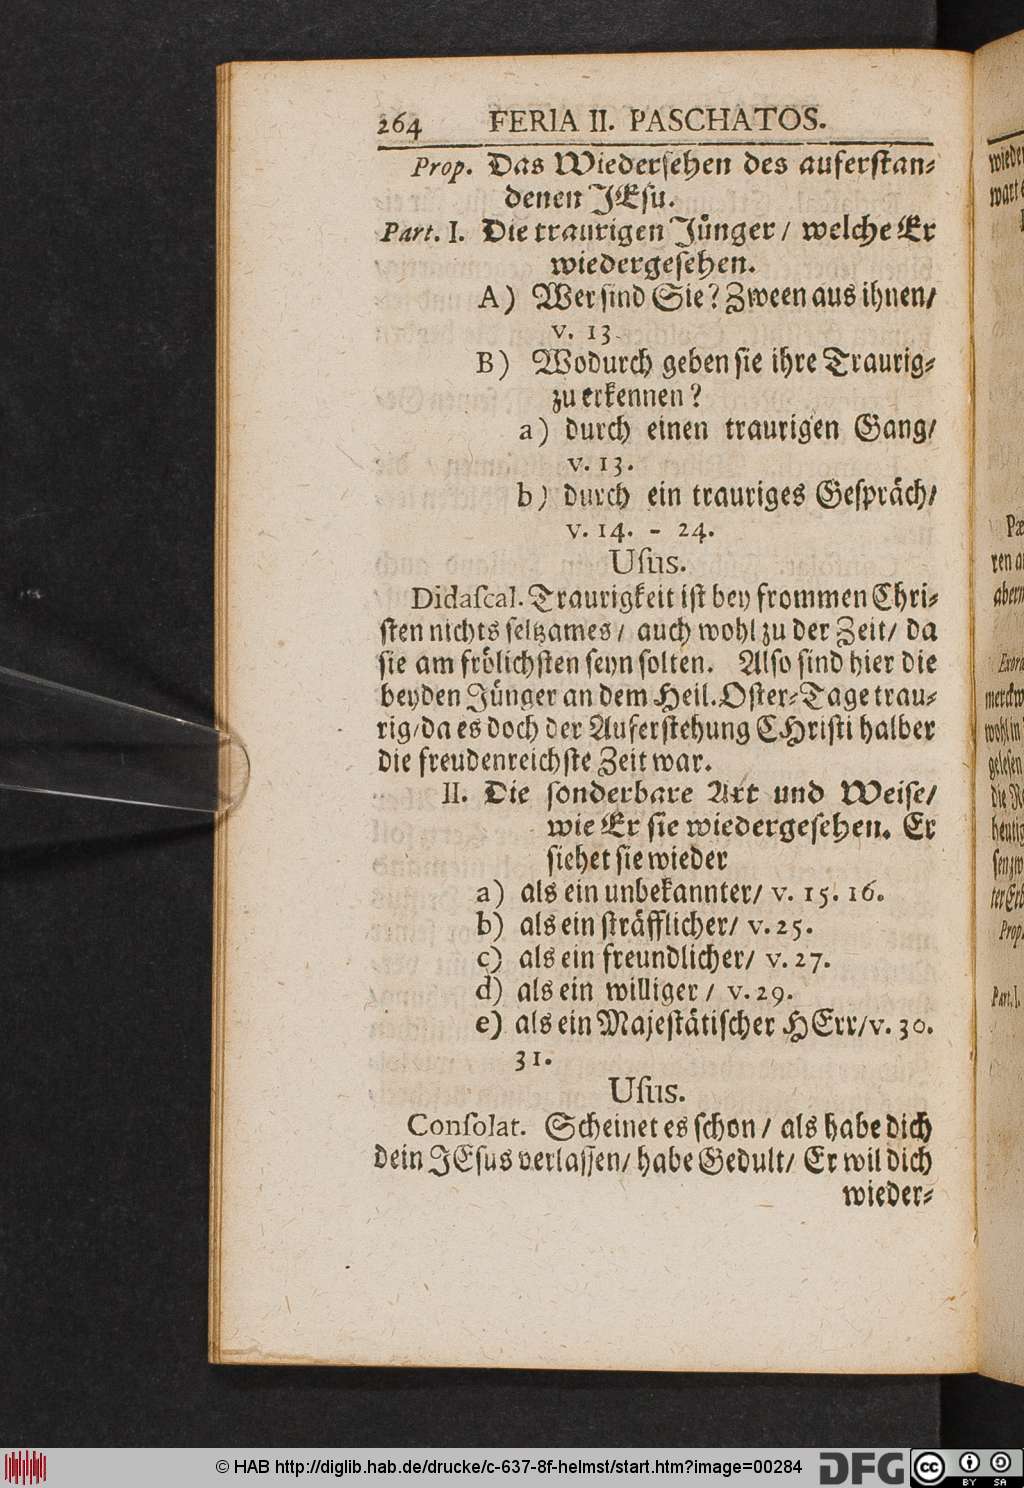 264 FERIA II. PASCHATOS.
Prop. Das Wiedersehen des auferstan⸗
denen JEsu.
Part. I. Die traurigen Jünger / welche Er
wiedergesehen.
A) Wer sind Sie? Zween aus ihnen/
v. 13.
B) Wodurch geben sie ihre Traurig⸗
zu erkennen?
a) durch einen traurigen Gang/
v. 13.
b) durch ein trauriges Gespräch/
v. 14. - 24.
Usus.
Didascal. Traurigkeit ist bey frommen Chri⸗
sten nichts seltzames / auch wohl zu der Zeit/ da
sie am frölichsten seyn solten. Also sind hier die
beyden Jünger an dem Heil. Oster⸗Tage trau⸗
rig/da es doch der Auferstehung CHristi halber
die freudenreichste Zeit war.
II. Die sonderbare Art und Weise/
wie Er sie wiedergesehen. Er
siehet sie wieder
a) als ein unbekannter/ v. 15. 16.
b) als ein sträfflicher/ v. 25.
c) als ein freundlicher/ v. 27.
d) als ein williger / v. 29.
e) als ein Majestätischer HErr/v. 30.
31.
Usus.
Consolat. Scheinet es schon / als habe dich
dein JEsus verlassen/ habe Gedult/ Er wil dich
wieder⸗
wart
Pæ
ren a
abern
Exord
merckw
wohl in
gelesen
die
heutig
sen zw
ter Erb
Prop.
Part. I.
© HAB http://diglib.hab.de/drucke/c-637-8f-helmst/start.htm?image=00284 DFG cc BY SA